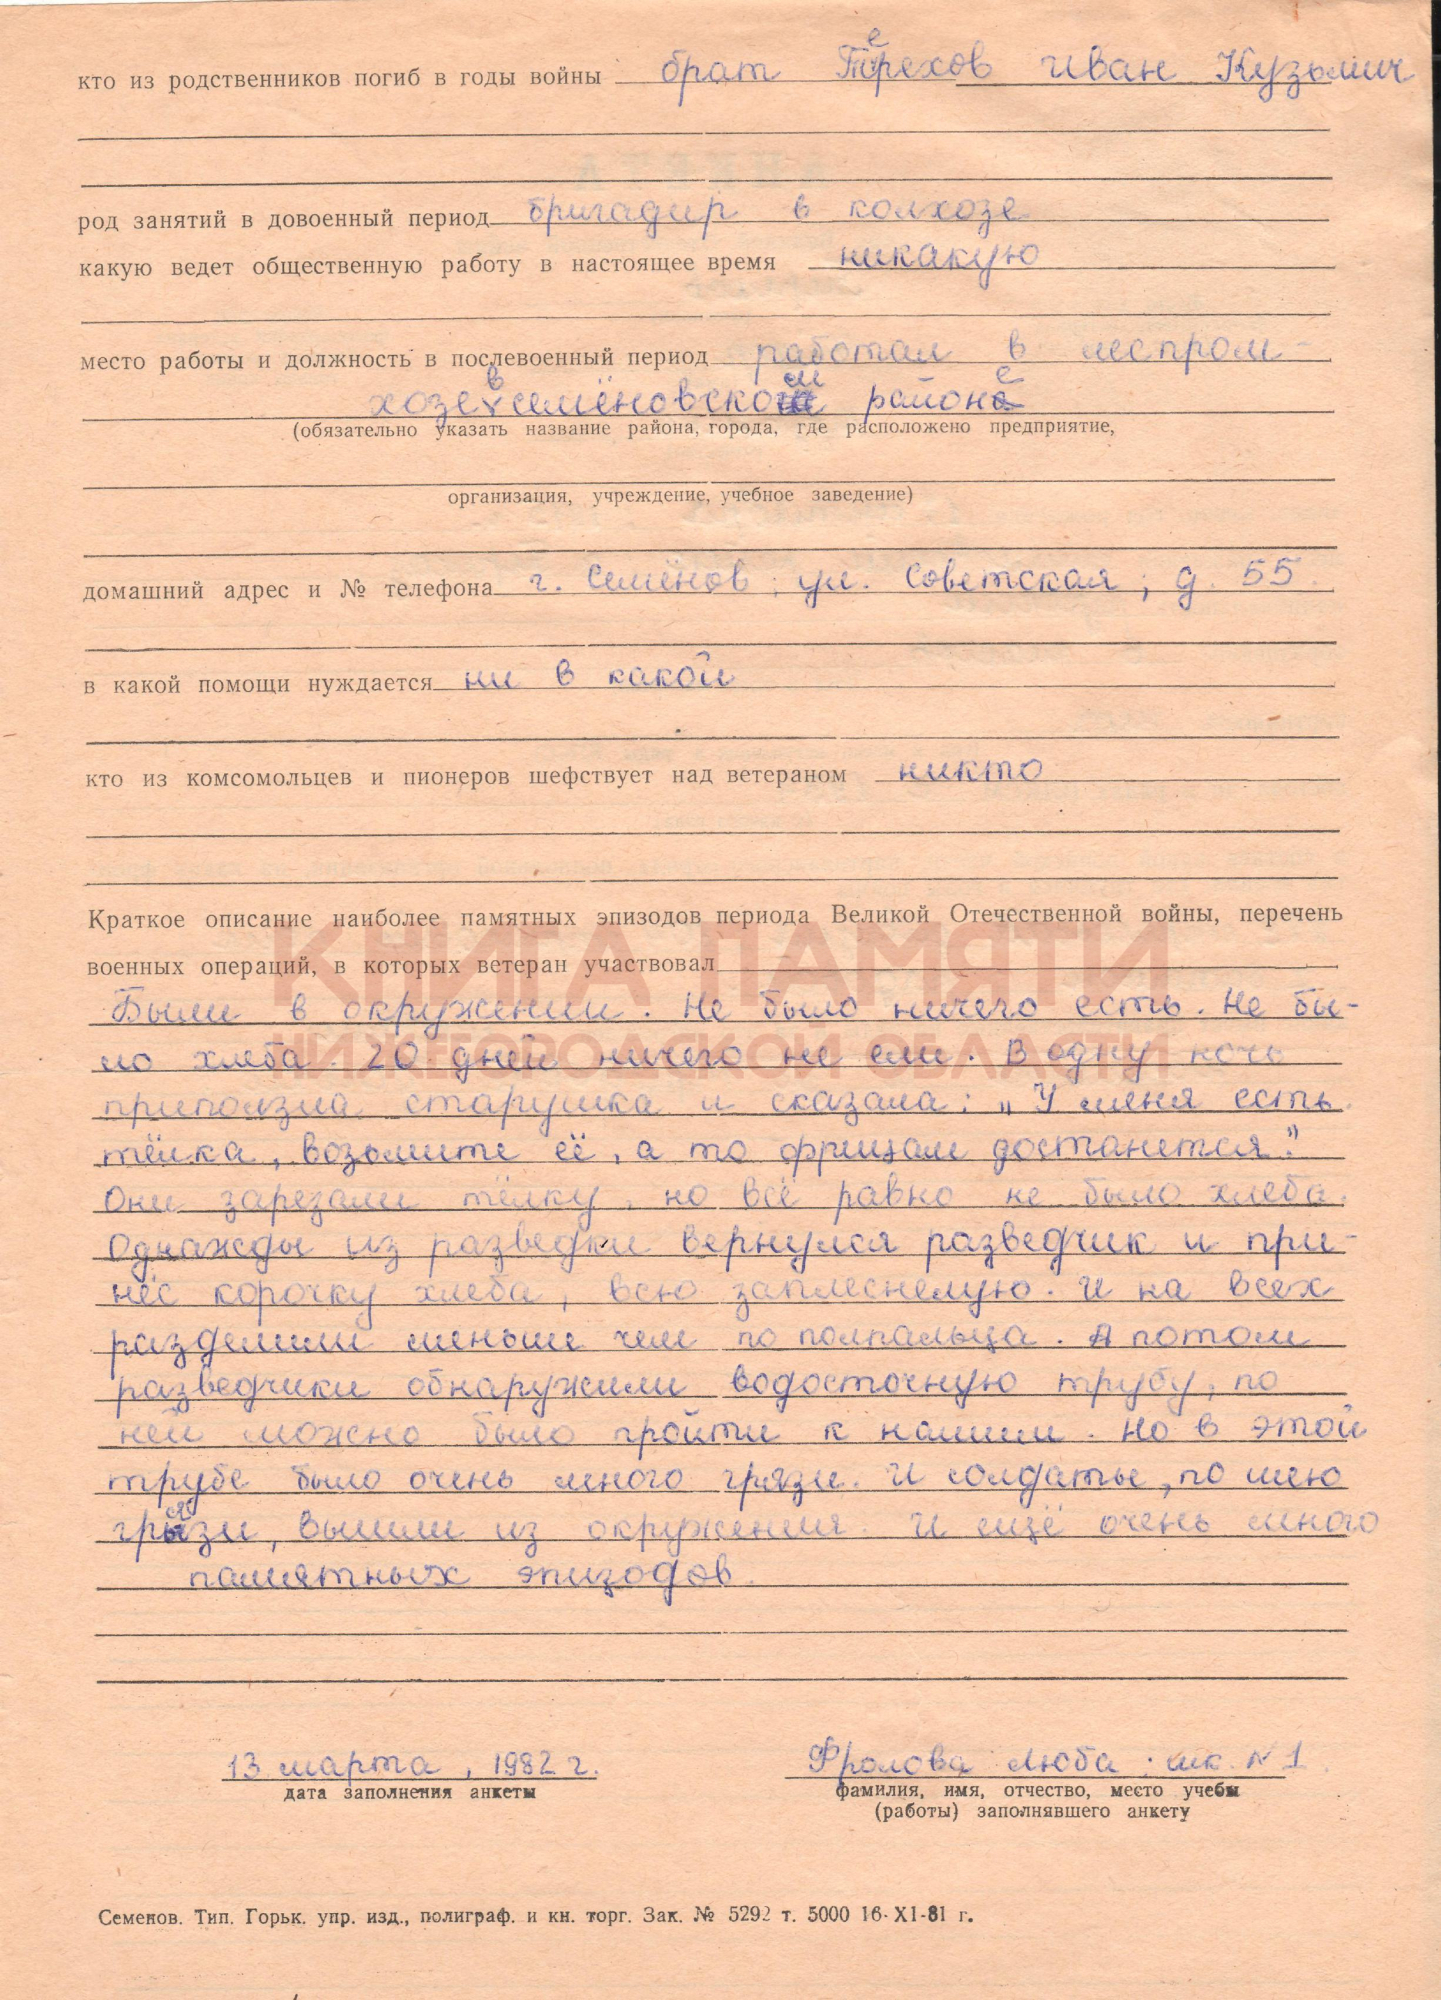 кто из родственников погиб в годы войны брат Терехов Иван Кузьмич
род занятий в довоенный период бригадир в колхозе
какую ведет общественную работу в настоящее время никакую
место работы и должность в послевоенный период работал в леспром-
хозе в семёновском районе
(обязательно указать название района, города, где расположено предприятие,
организация, учреждение, учебное заведение)
домашний адрес и № телефона г. Семёнов; ул. Советская; д. 55.
в какой помощи нуждается ни в какой
кто из комсомольцев и пионеров шефствует над ветераном никто
Краткое описание наиболее памятных эпизодов периода Великой Отечественной войны, перечень
военных операций, в которых ветеран участвовал
КНИГА ПАМЯТИ
Были в окружении. Не было ничего есть. Не бы-
ло хлеба. 20 дней ничего не ели. В одну ночь
НИЖЕГОРОДСКОЙ ОБЛАСТИ
приползла старушка и сказала: „У меня есть
тёлка, возьмите её, а то фрицам достанется."
Они зарезали тёлку, но всё равно не было хлеба.
Однажды из разведки вернулся разведчик и при-
нёс корочку хлеба, всю заплеснелую. И на всех
разделили меньше чем по полпальца. А потом
разведчики обнаружили водосточную трубу, по
ней можно было пройти к нашим. Но в этой
трубе было очень много грязи. И солдаты, по шею
грязи, вышли из окружения. И ещё очень много
памятных эпизодов.
13 марта, 1982 г. Фролова Люба. шк. N 1.
дата заполнения анкеты фамилия, имя, отчество, место учебы
(работы) заполнявшего анкету
Семенов. Тип. Горьк. упр. изд., полиграф. и кн. торг. Зак. № 5292 т. 5000 16-XI-81 г.